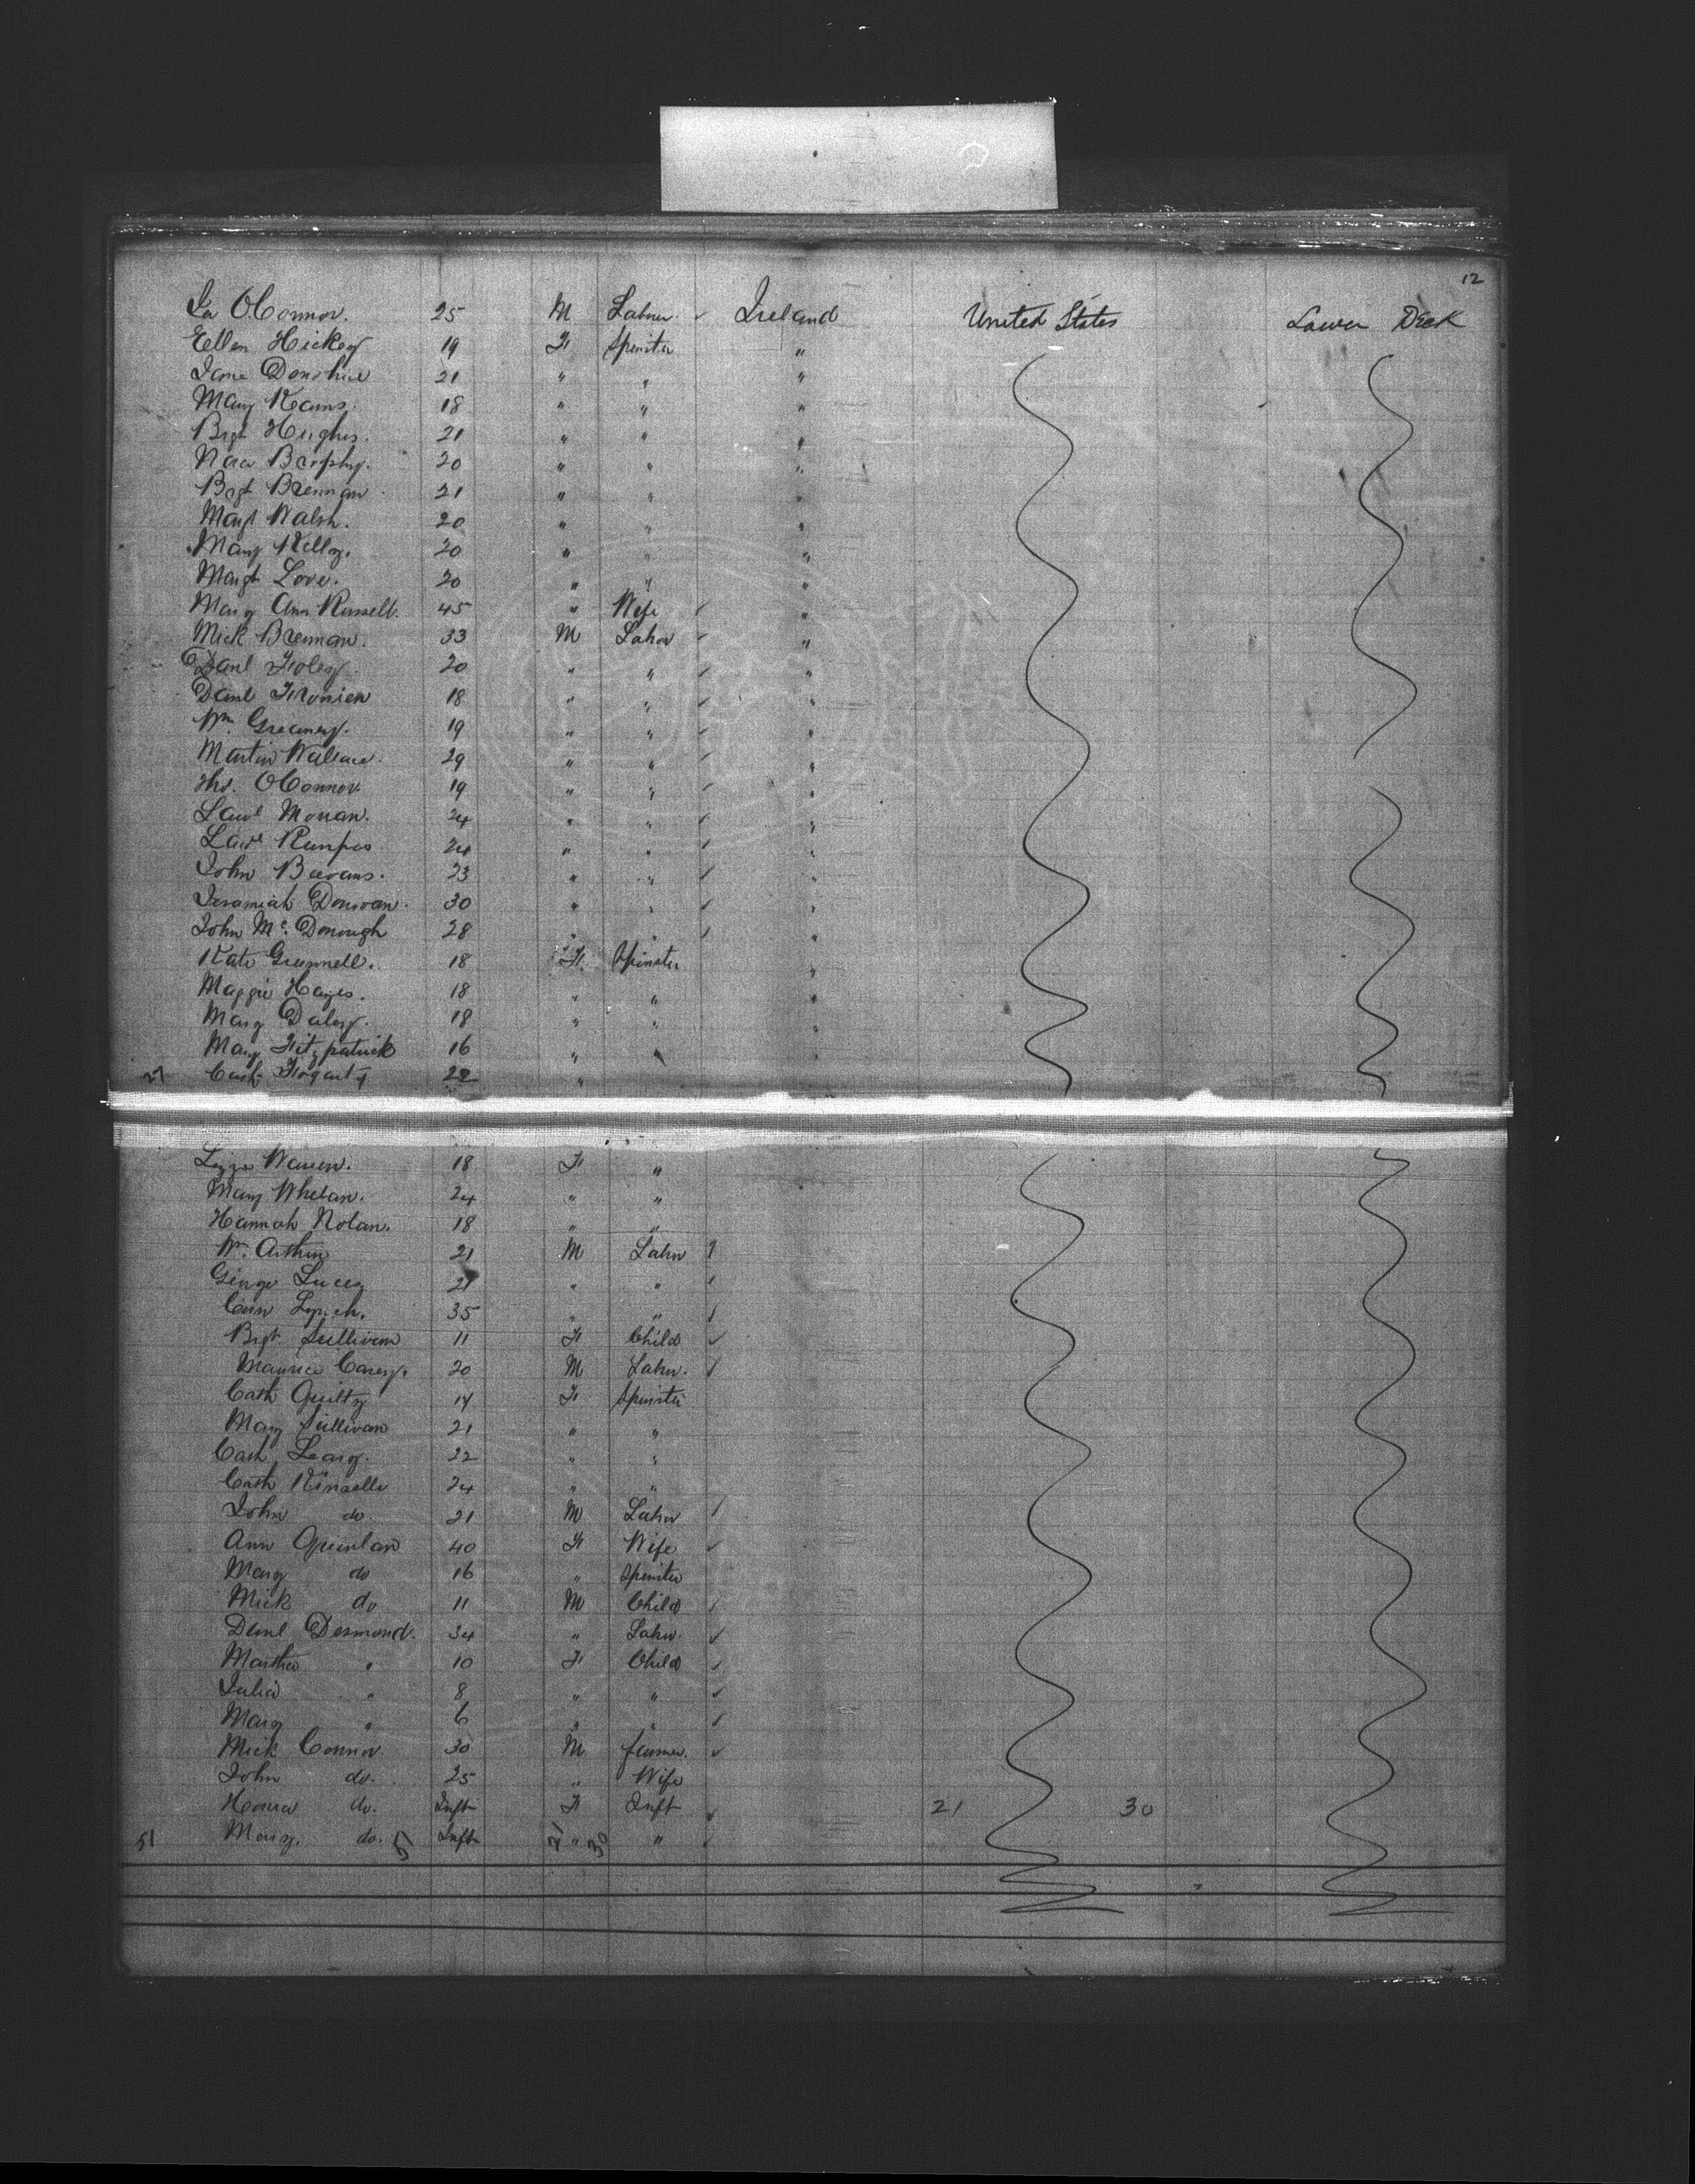 12
Ja O'Connor. 25 M Labour Ireland United States Lower Deck
Ellen Hickey 19 F Spinster "
Jane Donohue 21 " " "
Mary Kearns. 18 " " "
Brgt Hughes. 21 " " "
Nora Brophy. 20 " " "
Brgt Brennan 21 " " "
Margt Walsh. 20 " " "
Mary Kelly. 20 " " "
Margt Love. 20 " " "
Mary Ann Russell. 45 " Wife "
Mick Brennan. 33 M Labor "
Danl Foley. 20 " " "
Danl 18 " " "
Wm. Greaney. 19 " " "
Martin Wallace. 29 " " "
Thos. O'Connor 19 " " "
Lawe 24 " " "
Lawe 24 " " "
John Beevans. 23 " " "
Jeramiah Donovan. 30 " " "
John Mc. Donough 28 " " "
Kate Grennell. 18 F Spinster "
Maggie Hayes. 18 " " "
Mary Daley. 18 " " "
Mary Fitzpatrick 16 " " "
27 Cath Fogarty 22 "
Lizzie Warren. 18 F "
Mary Whelan. 24 " "
Hannah Nolan. 18 " "
Wm. Arthur 21 M Labor
George Lucey 21 " "
Conn Lynch. 35 " "
Brgt. Sullivan 11 F Child
Maurice Carey. 20 M Labor.
Cath Quilty 14 F Spinster
Mary Sullivan 21 " "
Cath Leary. 22 " "
Cath Kinsella 24 " "
John do 21 M Labor
Ann Quinlan 40 F Wife
Mary do 16 " Spinster
Mick do 11 M Child
Danl Desmond. 34 " Labor.
Martha " 10 F Child
Julia " 8 " "
Mary " 6 " "
Mick Connor 30 M farmer.
John do. 25 " Wife
Honra do. Inft F Inft 21 30
51 Mary. do. 51 Inft 21 " 30 "